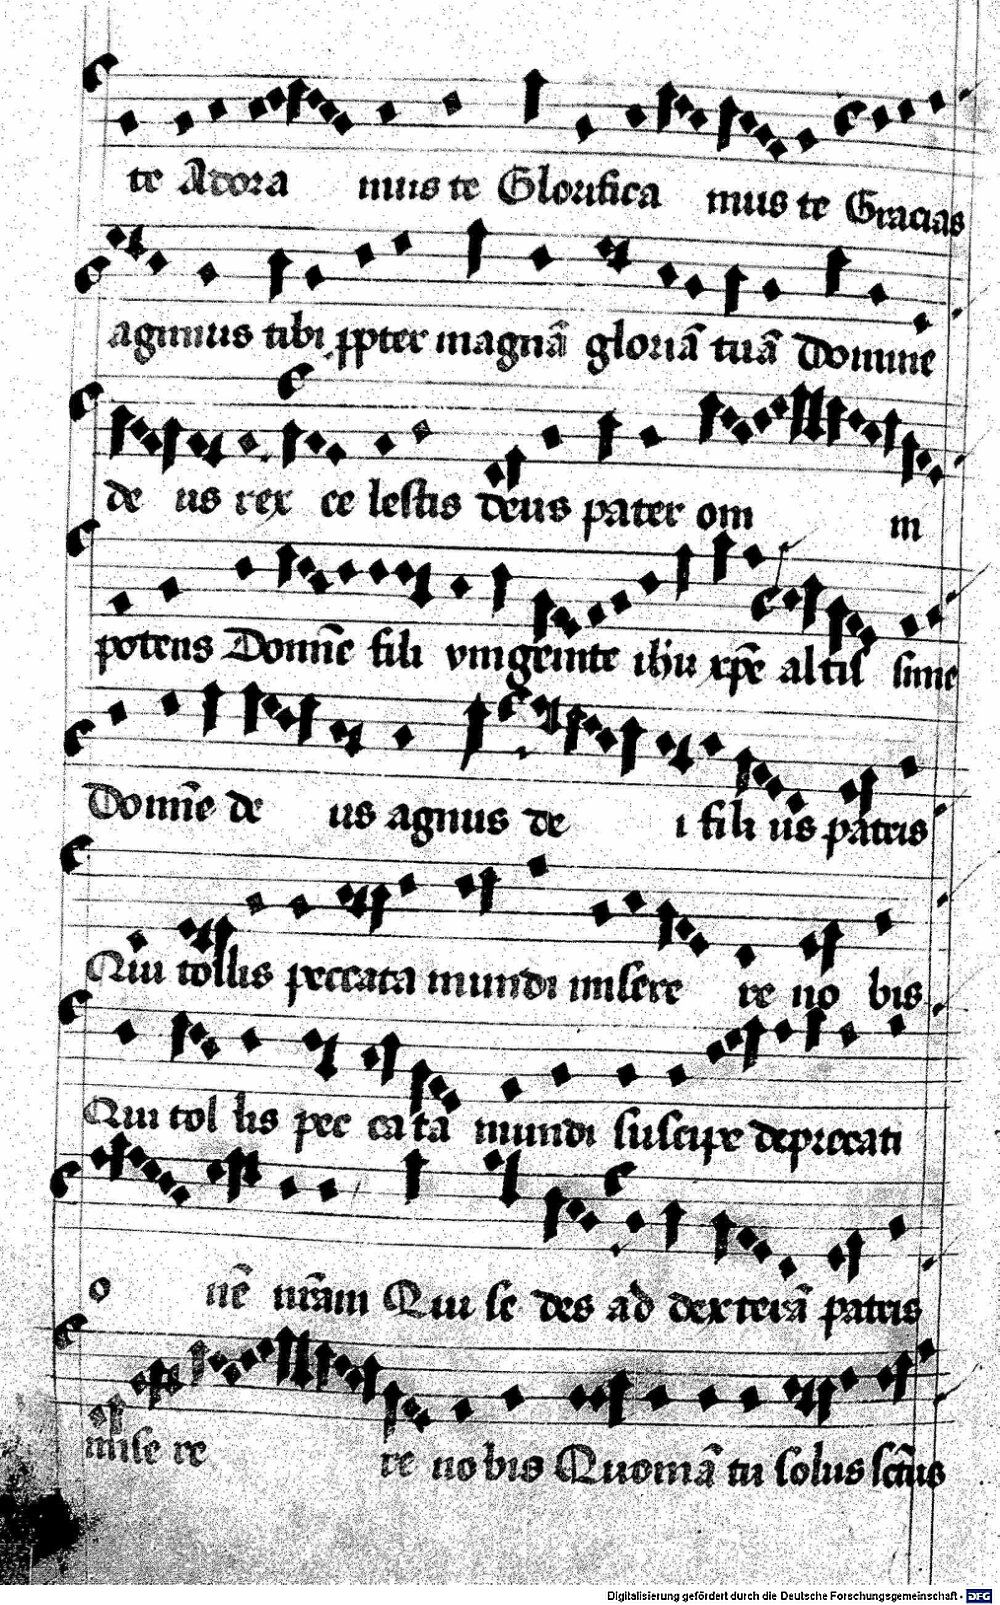 te Adora mus te Glorifica mus te Gracias
agimus tibi ppter magnā gloriā tuā Domine
de us rex ce lestis deus pater om ni
potens Domīe fili vnigenite ihu xpe altis sime
Domīe de us agnus de i fili us patris
Qui tollis peccata mundi misere re no bis
Qui tol lis pec cata mundi suscipe deprecati
o nē nr̄am Qui se des ad dexterā patris
mise re re nobis Quoniā tu solus sctūs
Digitalisierung gefördert durch die Deutsche Forschungsgemeinschaft - DFG